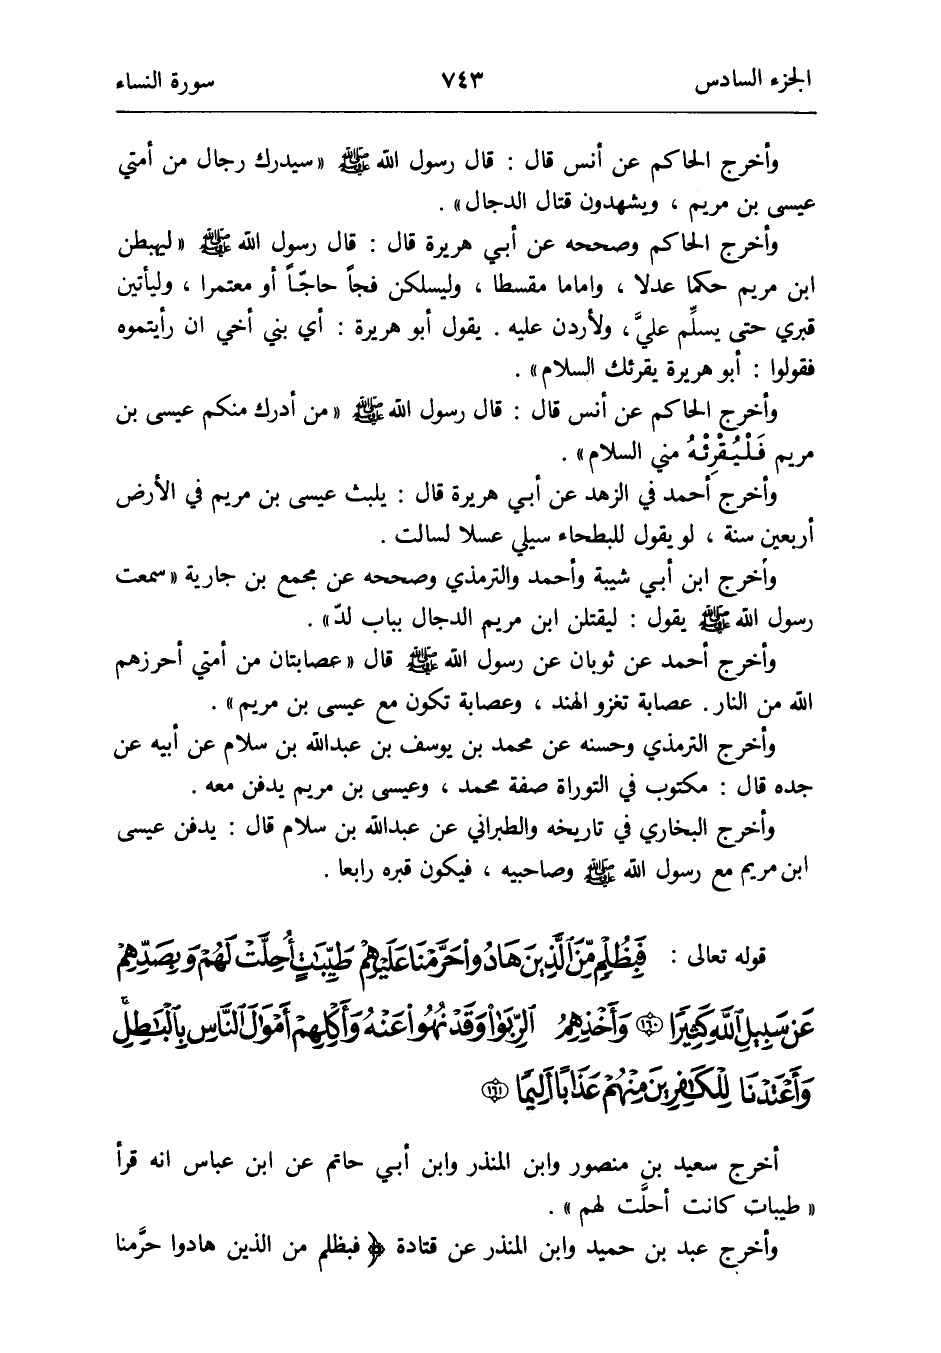 الجزء السادس ٧٤٣ سورة النساء
وأخرج الحاكم عن أنس قال : قال رسول الله ﷺ «سيدرك رجال من أمتي
عيسى بن مريم ، ويشهدون قتال الدجال» .
وأخرج الحاكم وصححه عن أبي هريرة قال : قال رسول الله ﷺ «ليهبطن
ابن مريم حكما عدلا ، واماما مقسطا ، وليسلكن فجاً حاجّاً أو معتمرا ، وليأتين
قبري حتى يسلِّم عليَّ، ولأردن عليه . يقول أبو هريرة : أي بني أخي ان رأيتموه
فقولوا : أبو هريرة يقرئك السلام» .
وأخرج الحاكم عن أنس قال : قال رسول الله ﷺ «من أدرك منكم عيسى بن
مريم فَلْيُقْرِئْهُ مني السلام» .
وأخرج أحمد في الزهد عن أبي هريرة قال : يلبث عيسى بن مريم في الأرض
أربعين سنة ، لو يقول للبطحاء سيلي عسلا لسالت .
وأخرج ابن أبي شيبة وأحمد والترمذي وصححه عن مجمع بن جارية «سمعت
رسول الله ﷺ يقول : ليقتلن ابن مريم الدجال بباب لدّ» .
وأخرج أحمد عن ثوبان عن رسول الله ﷺ قال «عصابتان من أمتي أحرزهم
الله من النار . عصابة تغزو الهند ، وعصابة تكون مع عيسى بن مريم» .
وأخرج الترمذي وحسنه عن محمد بن يوسف بن عبدالله بن سلام عن أبيه عن
جده قال : مكتوب في التوراة صفة محمد ، وعيسى بن مريم يدفن معه .
وأخرج البخاري في تاريخه والطبراني عن عبدالله بن سلام قال : يدفن عيسى
ابن مريم مع رسول الله ﷺ وصاحبيه ، فيكون قبره رابعا .
قوله تعالى : فَبِظُلْمٍ مِّنَ ٱلَّذِينَ هَادُوا۟ حَرَّمْنَا عَلَيْهِمْ طَيِّبَٰتٍ أُحِلَّتْ لَهُمْ وَبِصَدِّهِمْ
عَن سَبِيلِ ٱللَّهِ كَثِيرًا ١٦٠ وَأَخْذِهِمُ ٱلرِّبَوٰا۟ وَقَدْ نُهُوا۟ عَنْهُ وَأَكْلِهِمْ أَمْوَٰلَ ٱلنَّاسِ بِٱلْبَٰطِلِۚ
وَأَعْتَدْنَا لِلْكَٰفِرِينَ مِنْهُمْ عَذَابًا أَلِيمًا ١٦١
أخرج سعيد بن منصور وابن المنذر وابن أبي حاتم عن ابن عباس انه قرأ
«طيبات كانت أحلَّت لهم» .
وأخرج عبد بن حميد وابن المنذر عن قتادة ﴿ فبظلم من الذين هادوا حرَّمنا